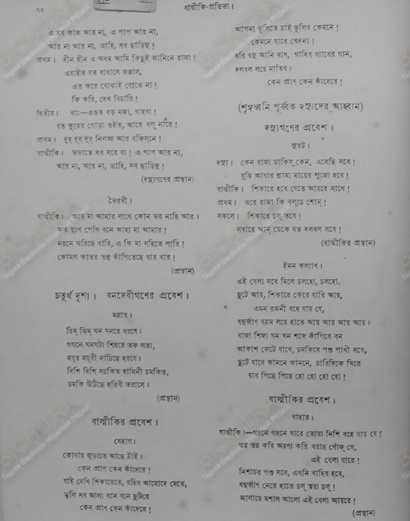 বাল্মীকি-প্রতিভা।
এ সব কাজ আর না, এ পাপ আর না,
আর না আর না, ত্রাহি, সব ছাড়িনু!
প্রথম। দীন হীন এ অধম আমি কিছুই জানিনে রাজা!
এরাইত যত বাধালে জঞ্জাল,
এত করে বোঝাই বোঝে না!
কি করি, দেখ বিচারি!
দ্বিতীয়। বাঃ—এওত বড় মজা, বাহবা!
যত কুয়ের গোড়া ওইত, আরে বল্ নারে!
প্রথম। দূর্ দূর্ দূর্ নির্লজ্জ আর বকিস্‌নে!
বাল্মীকি। তফাতে সব সরে যা। এ পাপ আর না,
আর না, আর না, ত্রাহি, সব ছাড়িনু!
(দস্যুগণের প্রস্থান)
ভৈরবী।
বাল্মীকি। আয় মা আমার সাথে কোন ভয় নাহি আর।
কত দুঃখ পেলি বনে আহা মা আমার!
নয়নে ঝরিছে বারি, এ কি মা সহিতে পারি!
কোমল কাতর তনু কাঁপিতেছে বার বার!
(প্রস্থান)
চতুর্থ দৃশ্য। বনদেবীগণের প্রবেশ।
মল্লার।
রিম্ ঝিম্ ঘন ঘনরে বরষে।
গগনে ঘনঘটা শিহরে তরু লতা,
ময়ূর ময়ূরী নাচিছে হরষে।
দিশি দিশি সচকিত দামিনী চমকিত,
চমকি উঠিছে হরিণী তরাসে।
(প্রস্থান)
বাল্মীকির প্রবেশ।
বেহাগ।
কোথায় জুড়াতে আছে ঠাঁই।
কেন প্রাণ কেন কাঁদেরে!
যাই দেখি শিকারেতে, রহিব আমোদে মেতে,
ভুলি সব জ্বালা বনে বনে ছুটিয়ে
কেন প্রাণ কেন কাঁদেরে!
আপনা ভুলিতে চাই ভুলিব কেমনে!
কেমনে যাবে বেদনা!
ধরি ধনু আনি বাণ, গাহিব ব্যাধের গান,
দলবল লয়ে মাতিব।
কেন প্রাণ কেন কাঁদেরে!
(শৃঙ্গধ্বনি পূর্ব্বক দস্যুদের আহ্বান)
দস্যুগণের প্রবেশ।
দস্যু। কেন রাজা ডাকিস্ কেন, এসেছি সবে!
বুঝি আবার শ্যামা মায়ের পূজো হবে!
বাল্মীকি। শিকারে হবে যেতে আয়রে সাথে!
প্রথম। ওরে রাজা কি বল্‌চে শোন্!
সকলে। শিকারে চল্ তবে!
সবারে আন্ ডেকে যত দলবল সবে!
(বাল্মীকির প্রস্থান)
ইমন কল্যাণ।
এই বেলা সবে মিলে চলহো, চলহো,
ছুটে আয়, শিকারে কেরে যাবি আয়,
এমন রজনী বহে যায় যে,
ধনুর্ব্বাণ বল্লম লয়ে হাতে আয় আয় আয় আয়।
বাজা শিঙ্গা ঘন ঘন শব্দে কাঁপিবে বন
আকাশ ফেটে যাবে, চমকিবে পশু পাখী সবে,
ছুটে যাবে কাননে কাননে, চারিদিকে ঘিরে
যাব পিছে পিছে হো হো হো হো!
বাল্মীকির প্রবেশ।
বাহার।
বাল্মীকি।—গহনে গহনে যারে তোরা নিশি বহে যায় যে!
তন্ন তন্ন করি অরণ্য করি বরাহ খোঁজ্ গে,
এই বেলা যারে!
নিশাচর পশু সবে, এখনি বাহির হবে,
ধনুর্ব্বাণ নেরে হাতে চল্ ত্বরা চল্!
জ্বালায়ে মশাল আলো এই বেলা আয়রে!
(প্রস্থান)